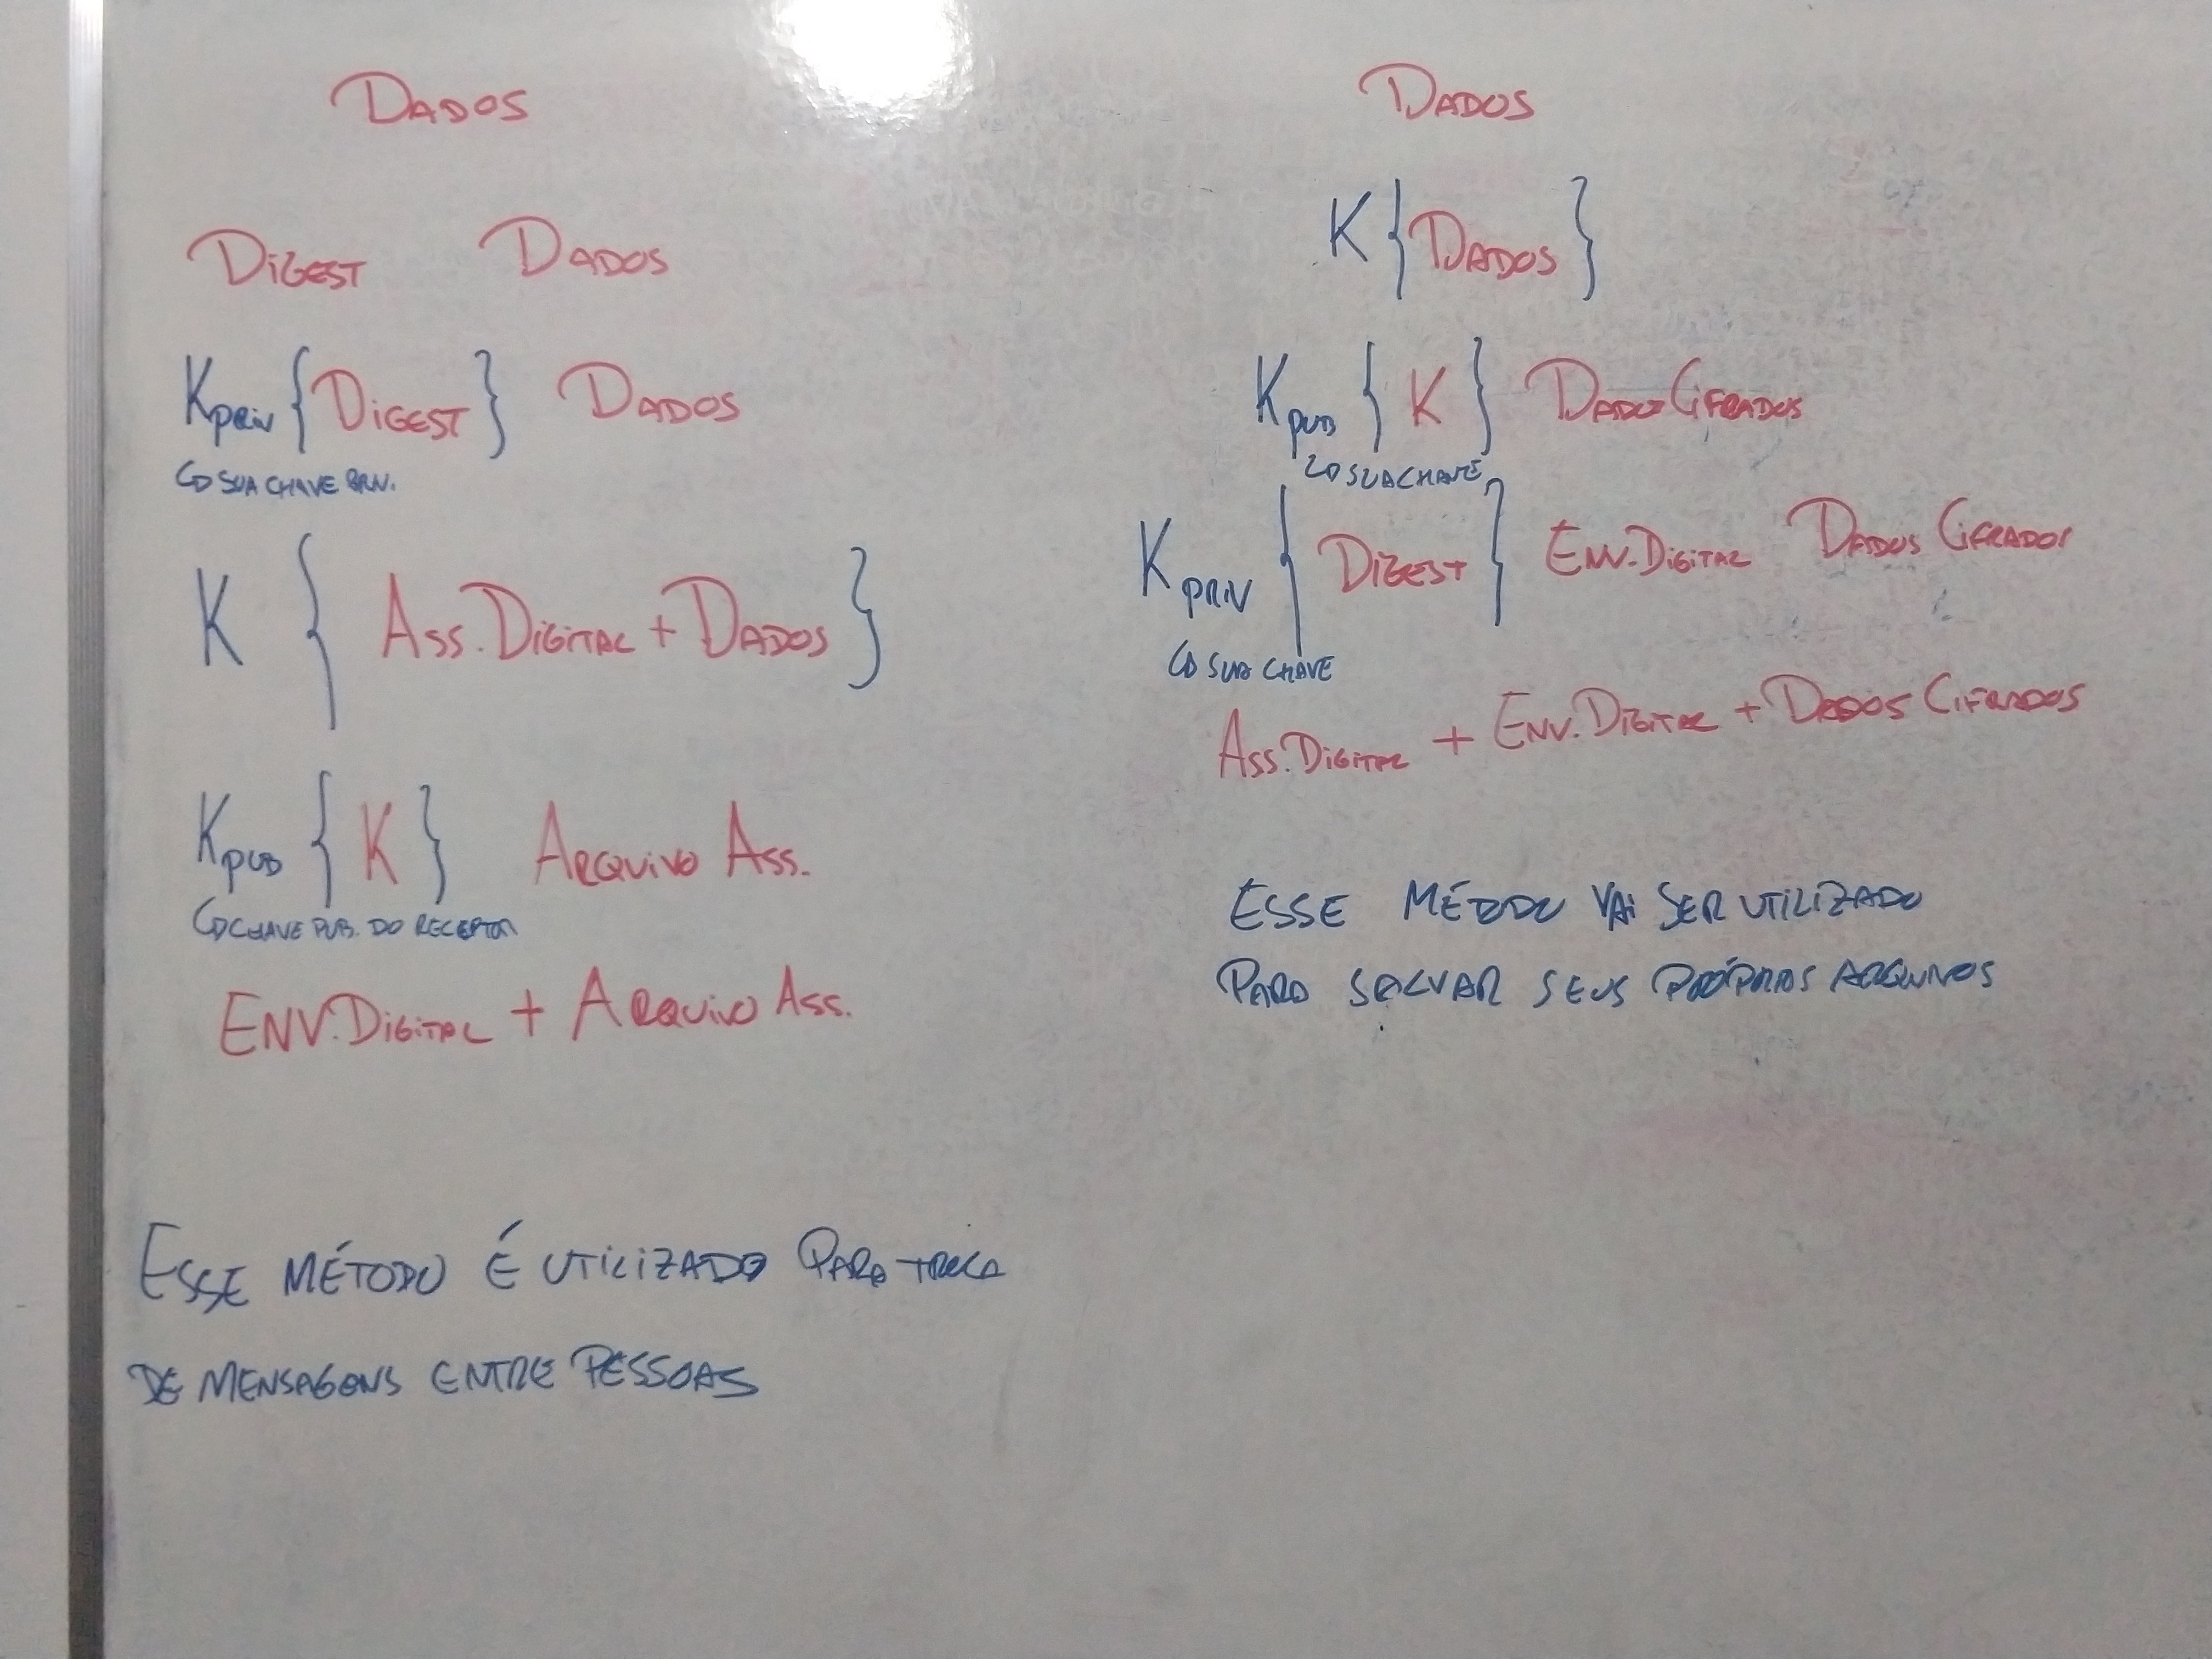 DADOS
DIGEST DADOS
Kpriv { DIGEST } DADOS
↳ SUA CHAVE PRIV.
K { ASS. DIGITAL + DADOS }
Kpub { K } ARQUIVO ASS.
↳ CHAVE PUB. DO RECEPTOR
ENV. DIGITAL + ARQUIVO ASS.
ESSE MÉTODO É UTILIZADO PARA TROCA
DE MENSAGENS ENTRE PESSOAS
DADOS
K { DADOS }
Kpub { K } DADOS CIFRADOS
↳ SUA CHAVE
Kpriv { DIGEST } ENV. DIGITAL DADOS CIFRADOS
↳ SUA CHAVE
ASS. DIGITAL + ENV. DIGITAL + DADOS CIFRADOS
ESSE MÉTODO VAI SER UTILIZADO
PARA SALVAR SEUS PRÓPRIOS ARQUIVOS